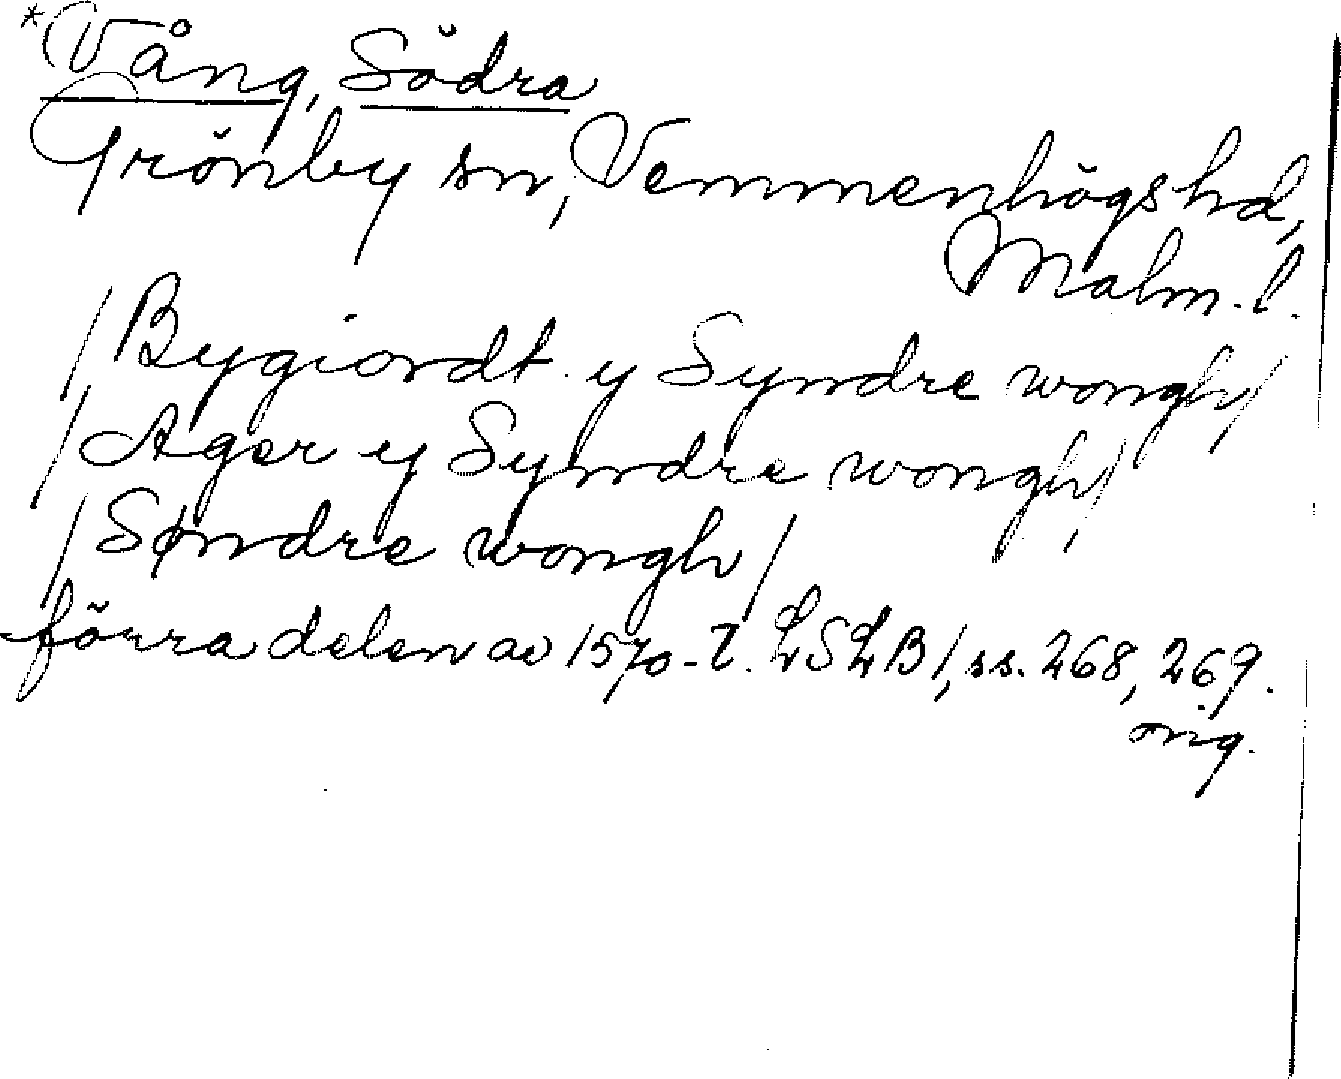 *Vång, Södra
Grönby sn, Vemmenhögs hd,
Malm. l.
/Bygiordt y Syndre wongh/
/Ager y Syndre wongh/
/Søndre wongh/
förra delen av 1570-t. LSLB 1, ss. 268, 269.
orig.